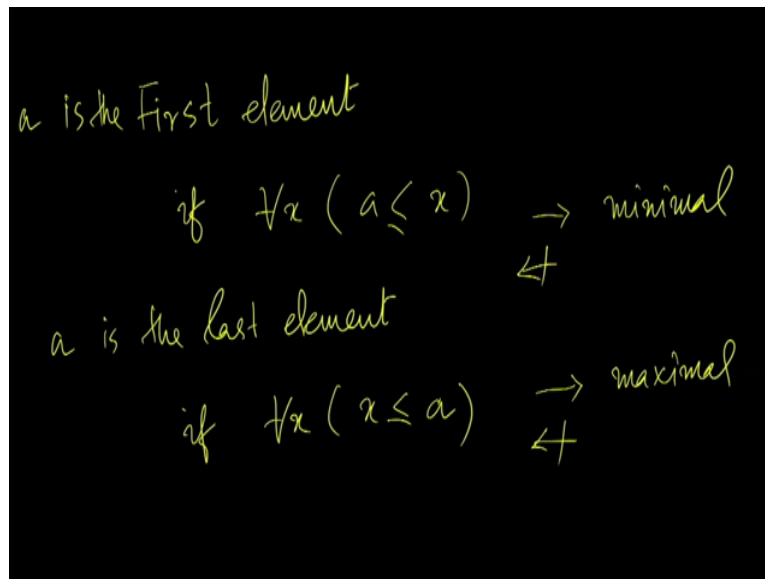 a is the First element
if ∀x ( a ≤ x ) → minimal
↚
a is the last element
if ∀x ( x ≤ a ) → maximal
↚